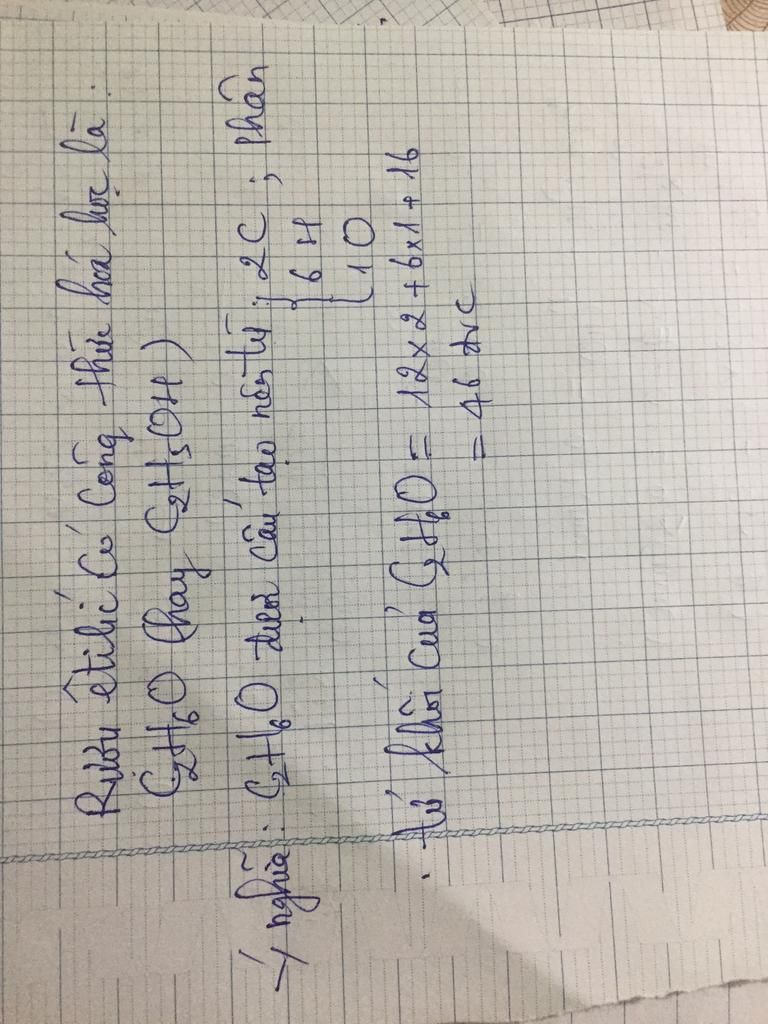 Rượu êtilic có công thức hoá học là.
C₂H₆O (hay C₂H₅OH)
Ý nghĩa: C₂H₆O được cấu tạo nên từ: 2C; phân
{ 6 H
{ 1 O
tử khối của C₂H₆O = 12x2 + 6x1 + 16
= 46 đvC